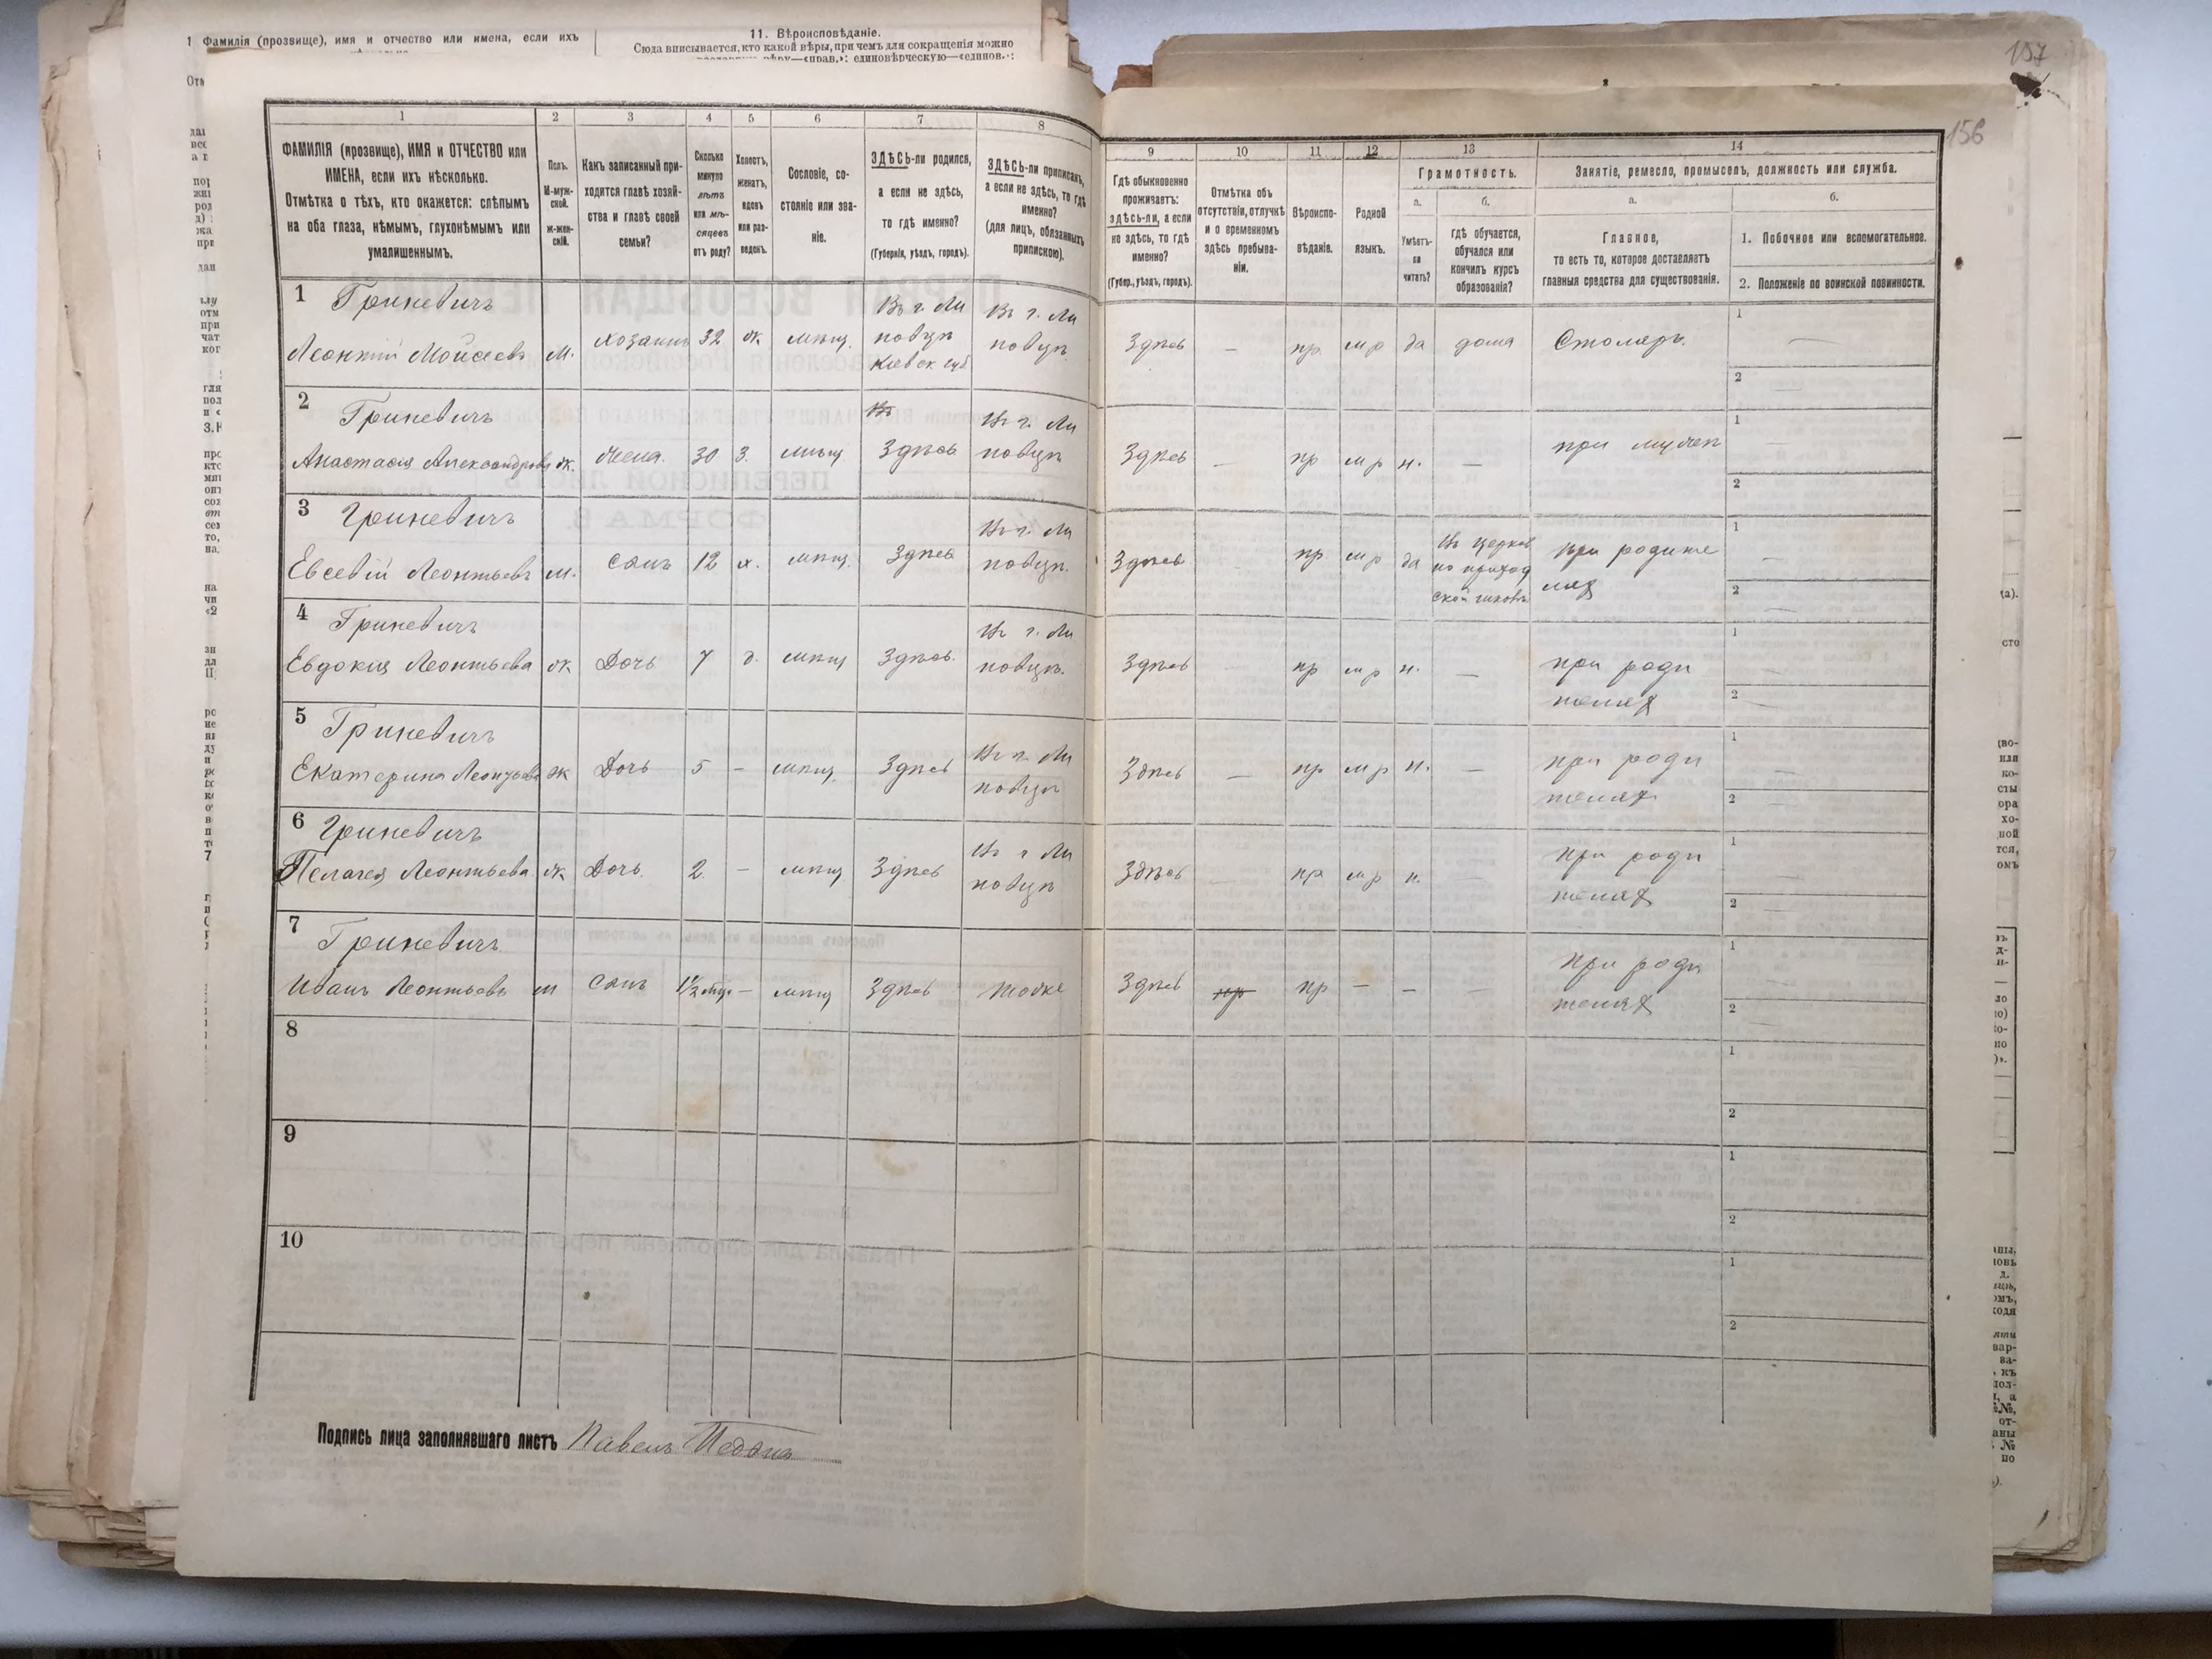 1 Фамилія (прозвище), имя и отчество или имена, если ихъ
11. Вѣроисповѣданіе.
Сюда вписывается, кто какой вѣры, при чемъ для сокращенія можно
157
156
1
2
3
4
5
6
7
8
ФАМИЛІЯ (прозвище), ИМЯ и ОТЧЕСТВО или
ИМЕНА, если ихъ нѣсколько.
Отмѣтка о тѣхъ, кто окажется: слѣпымъ
на оба глаза, нѣмымъ, глухонѣмымъ или
умалишеннымъ.
Полъ.
М-муж-
ской.
ж-жен-
скій.
Какъ записанный при-
ходится главѣ хозяй-
ства и главѣ своей
семьи?
Сколько
минуло
лѣтъ
или мѣ-
сяцевъ
отъ роду?
Холостъ,
женатъ,
вдовъ
или раз-
веденъ.
Сословіе, со-
стояніе или зва-
ніе.
ЗДѢСЬ-ли родился,
а если не здѣсь,
то гдѣ именно?
(Губернія, уѣздъ, городъ).
ЗДѢСЬ-ли приписанъ,
а если не здѣсь, то гдѣ
именно?
(для лицъ, обязанныхъ
припискою).
9
10
11
12
13
14
Гдѣ обыкновенно
проживаетъ:
здѣсь-ли, а если
не здѣсь, то гдѣ
именно?
(Губер., уѣздъ, городъ).
Отмѣтка объ
отсутствіи, отлучкѣ
и о временномъ
здѣсь пребыва-
ніи.
Вѣроиспо-
вѣданіе.
Родной
языкъ.
Грамотность.
а.
б.
Умѣетъ-
ли
читать?
гдѣ обучается,
обучался или
кончилъ курсъ
образованія?
Занятіе, ремесло, промыселъ, должность или служба.
а.
б.
Главное,
то есть то, которое доставляетъ
главныя средства для существованія.
1. Побочное или вспомогательное.
2. Положеніе по воинской повинности.
1 Гриневичъ
Леонтій Моисеевъ м. хозаинъ 32 ж мѣщ. Въ г. Ли
повцѣ
Кіевск. губ.
Въ г. Ли
повцѣ
Здѣсь — пр. мр да дома Столяръ. 1 —
2 —
2 Гриневичъ
Анастасія Александрова ж. жена. 30 з. мѣщ. Въ
Здѣсь
Въ г. Ли
повцѣ
Здѣсь — пр мр н. — при мужѣ 1 —
2
3 Гриневичъ
Евсевій Леонтьевъ м. сынъ 12 х. мѣщ. Здѣсь
Въ г. Ли
повцѣ.
Здѣсь пр мр да Въ церков
но приход
ской школѣ
при родите
ляхъ
1 —
2 —
4 Гриневичъ
Евдокія Леонтьева ж Дочь 7 д. мѣщ Здѣсь.
Въ г. Ли
повцѣ.
Здѣсь пр мр н. — при роди
теляхъ
1 —
2 —
5 Гриневичъ
Екатерина Леонтьева ж Дочь 5 — мѣщ. Здѣсь
Въ г. Ли
повцѣ
Здѣсь — пр мр н. — при роди
теляхъ
1 —
2 —
6 Гриневичъ
Пелагея Леонтьева ж Дочь. 2. — мѣщ Здѣсь
Въ г Ли
повцѣ
Здѣсь пр мр н. — при роди
теляхъ
1 —
2 —
7 Гриневичъ
Иванъ Леонтьевъ м сынъ 1½ — мѣщ Здѣсь тоже
Здѣсь пр пр — — — при роди
теляхъ
1 —
2 —
8
1
2
9
1
2
10
1
2
Подпись лица заполнявшаго листъ Павелъ